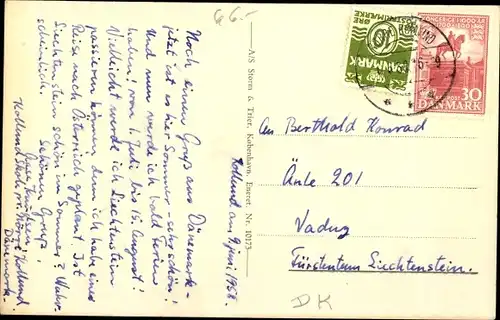 66.-
Kollund am 9 juni 1958.
Noch einen Gruß aus Dänemark -
jetzt ist es hier Sommer - sehr schön!
Und nun werde ich bald Ferien
haben! von 1. Juli bis 15. August!
Vielleicht werde ich Liechtenstein
passieren können, denn ich habe eine
Reise nach Österreich geplant. Ist
Liechtenstein schön im Sommer? Wahr-
scheinlich.
Schönen Gruß!
Kollund
Dänemark.
A/S Storm & Trier, København. Eneret. Nr. 10173
ØRE
DANMARK
KONGERIGE 1000 ÅR
POST
30
DANMARK
An Berthold Konrad
Äule 201
Vaduz
Fürstentum Liechtenstein.
DK